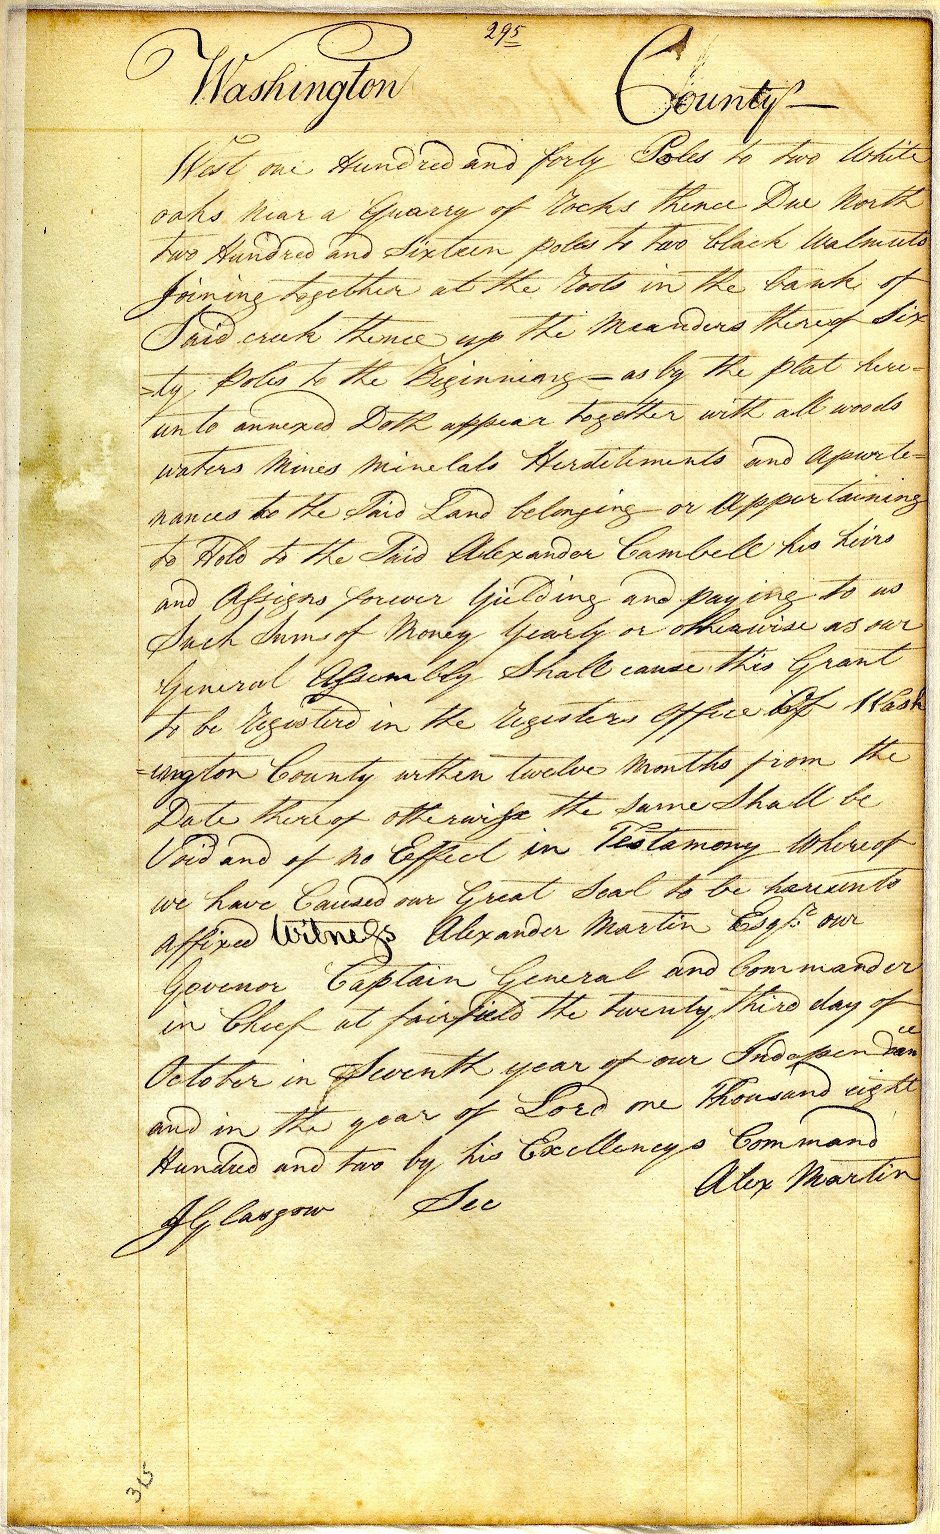 295
Washington County
West one Hundred and forty Poles to two White
oaks near a Quarry of Rocks thence Due North
two Hundred and Sixteen poles to two black Walnuts
Joining together at the Roots in the bank of
Said creek thence up the Meanders thereof Six
=ty poles to the Beginning – as by the plat here=
unto annexed Doth appear together with all woods
waters Mines Minelals Herditements and Apurte=
nances to the Said Land belonging or Appertaining
to Hold to the Said Alexander Cambell his heirs
and Assigns forever Yielding and paying to us
Such Sums of Money Yearly or otherwise as our
General Assembly Shall cause this Grant
to be Registerd in the Registers office Of Wash
=ington County within twelve Months from the
Date thereof otherwise the same Shall be
Void and of no Effect in Testamony Whereof
we have Caused our Great Seal to be hereunto
affixed Witness Alexander Martin Esqr. our
Govenor Captain General and Commander
in Chief at fairfield the twenty third day of
October in Seventh year of our Independance
and in the year of Lord one Thousand eight
Hundred and two by his Excellencys Command
Alex Martin
J Glasgow Sec
315